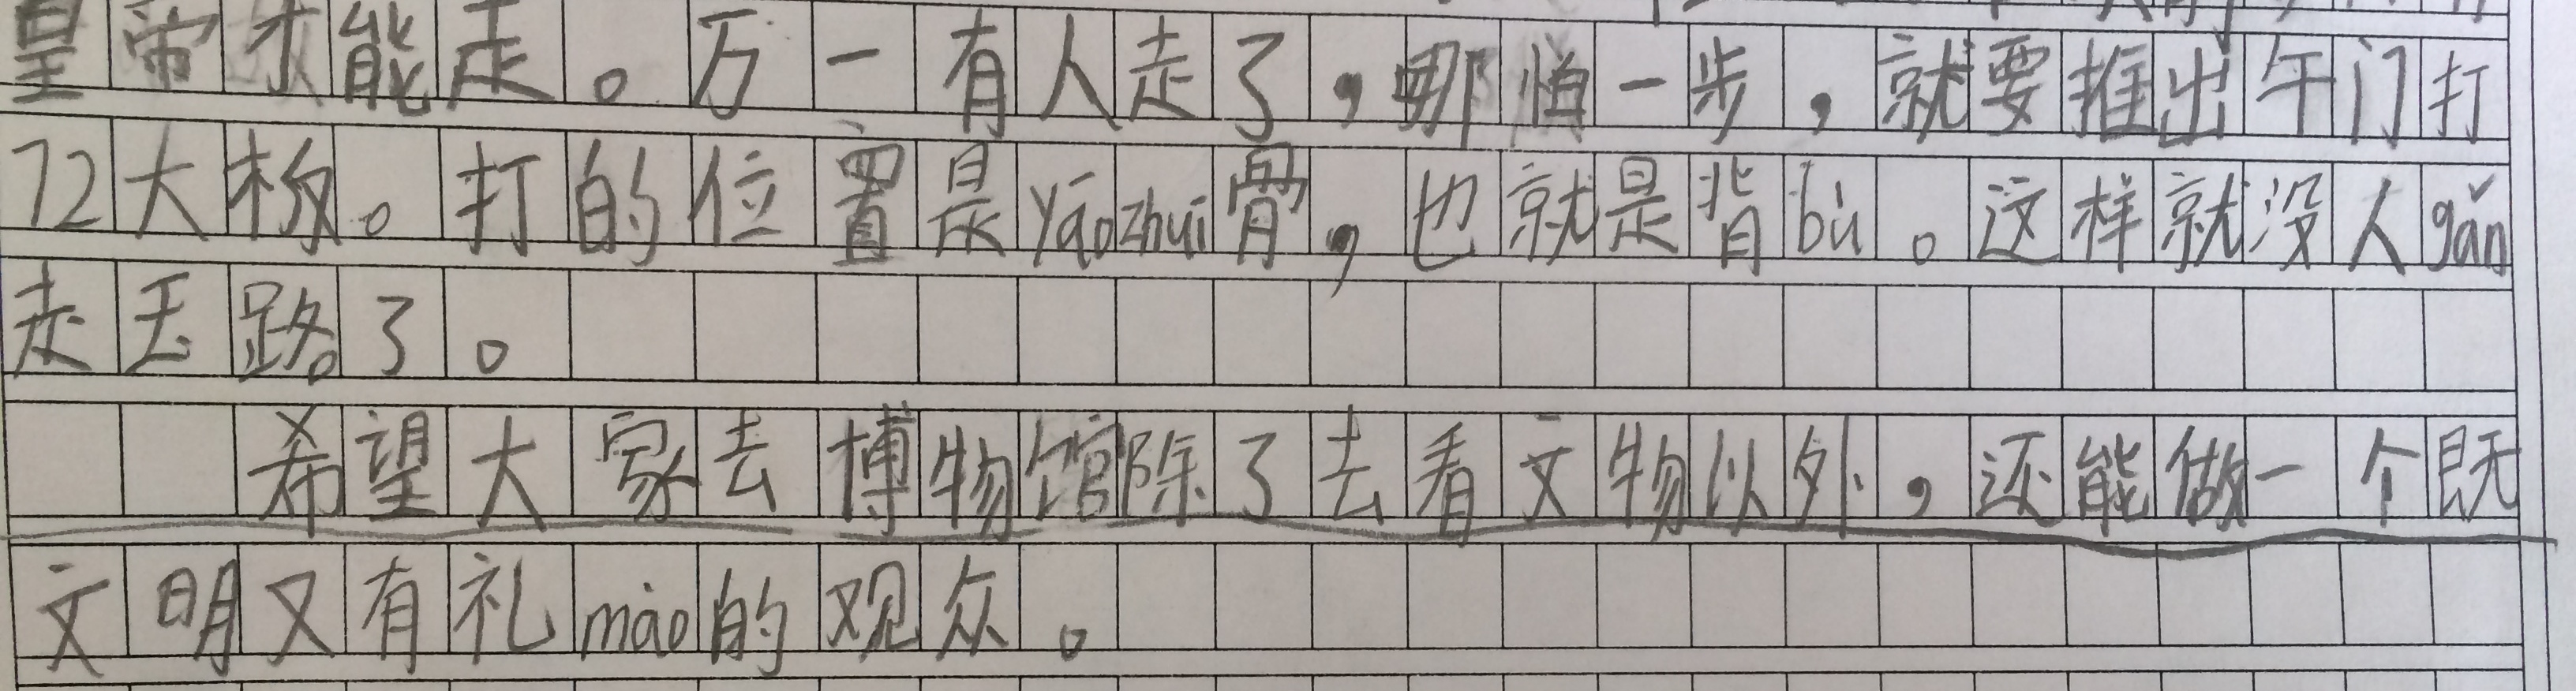 皇帝才能走。万一有人走了，哪怕一步，就要推出午门打
72大板。打的位置是yāozhuī骨，也就是背bù。这样就没人gǎn
走玉路了。
希望大家去博物馆除了去看文物以外，还能做一个既
文明又有礼mào的观众。